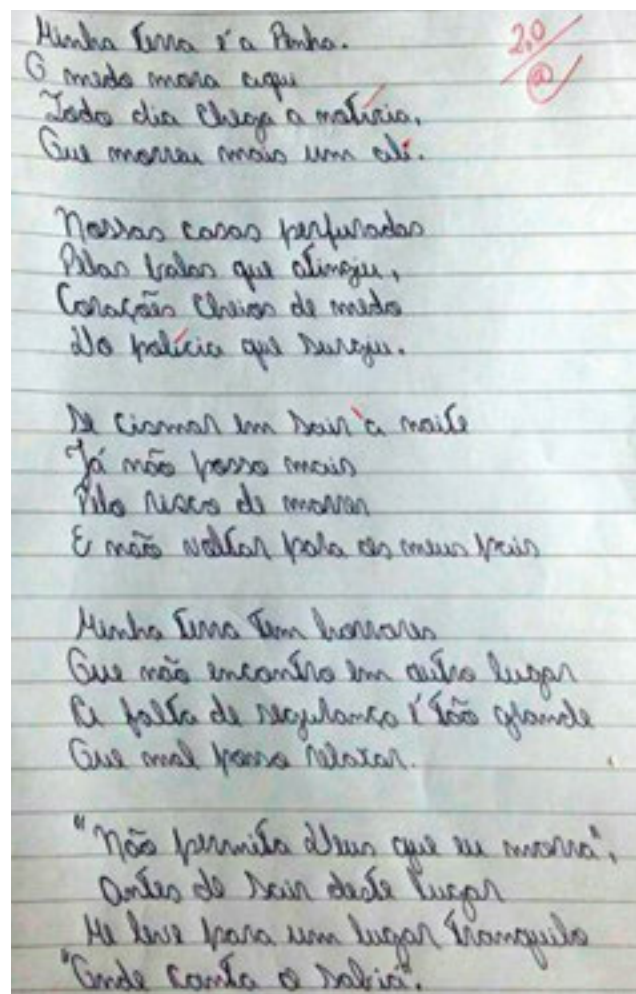 Minha terra é a Penha.
O medo mora aqui
Todo dia chega a notícia,
Que morreu mais um ali.
Nossas casas perfuradas
Pelas balas que atingiu,
Corações cheios de medo
Do polícia que surgiu.
Se cismar em sair à noite
Já não posso mais
Pelo risco de morrer
E não voltar para os meus pais
Minha terra tem horrores
Que não encontro em outro lugar
A falta de segurança é tão grande
Que mal posso relaxar.
"Não permita Deus que eu morra",
Antes de sair deste lugar
Me leve para um lugar tranquilo
"Onde canta o sabiá".
2,0